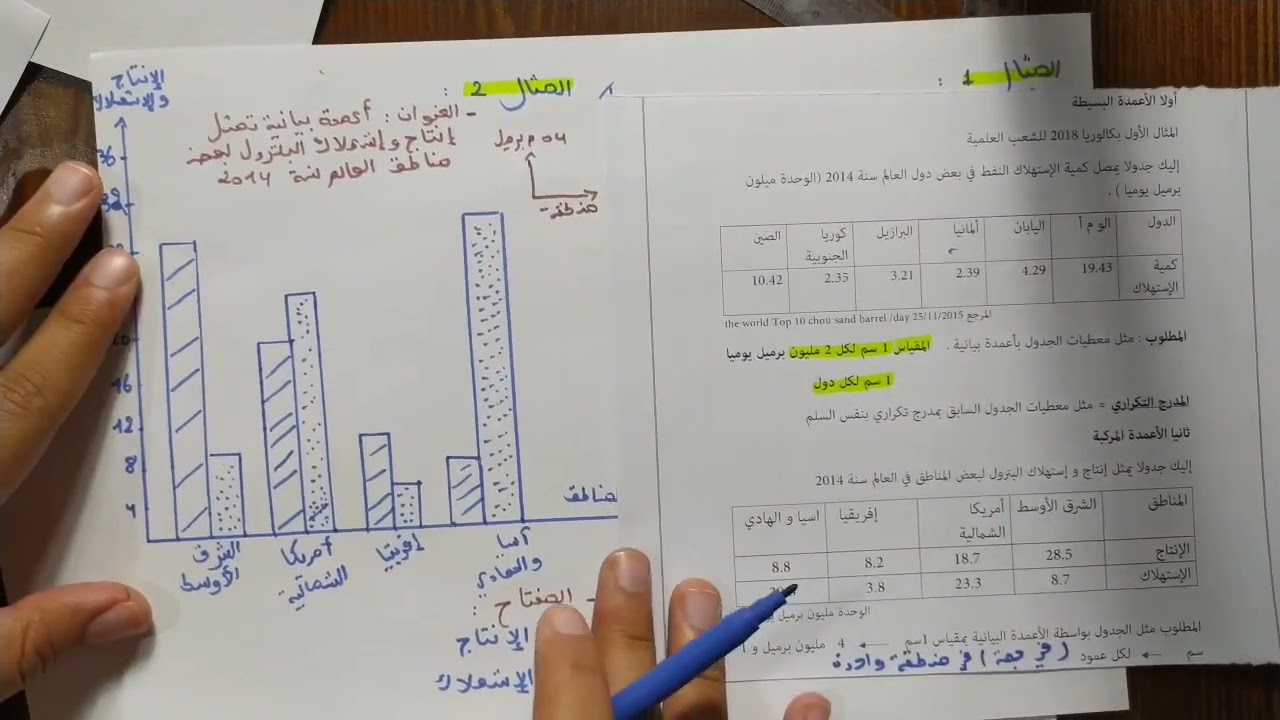 المثال 1 :
أولا الأعمدة البسيطة
المثال الأول بكالوريا 2018 للشعب العلمية
إليك جدولا يمصل كمية الإستهلاك النفط في بعض دول العالم سنة 2014 (الوحدة ميلون
برميل يوميا ) .
الدول الو م أ اليابان ألمانيا البرازيل كوريا الجنوبية الصين
كمية الإستهلاك 19.43 4.29 2.39 3.21 2.35 10.42
المرجع the world Top 10 chou sand barrel /day 25/11/2015
المطلوب : مثل معطيات الجدول بأعمدة بيانية . المقياس 1 سم لكل 2 مليون برميل يوميا
1 سم لكل دول
المدرج التكراري = مثل معطيات الجدول السابق بمدرج تكراري بنفس السلم
ثانيا الأعمدة المركبة
إليك جدولا يمثل إنتاج و إستهلاك البترول لبعض المناطق في العالم سنة 2014
المناطق الشرق الأوسط أمريكا الشمالية إفريقيا اسيا و الهادي
الإنتاج 28.5 18.7 8.2 8.8
الإستهلاك 8.7 23.3 3.8
الوحدة مليون برميل
المطلوب مثل الجدول بواسطة الأعمدة البيانية بمقياس 1سم ← 4 مليون برميل و 1
سم ← لكل عمود ( في جهة ) في منطقة واحدة
المثال 2 :
- العنوان : أعمدة بيانية تمثل
إنتاج و إستهلاك البترول لبعض
مناطق العالم سنة 2014
04 م برميل
منطقة
الإنتاج
والإستهلاك
36
32
20
16
12
8
4
مناطق
الشرق الأوسط
أمريكا الشمالية
إفريقيا
آسيا والهادي
- المفتاح :
الإنتاج
الإستهلاك